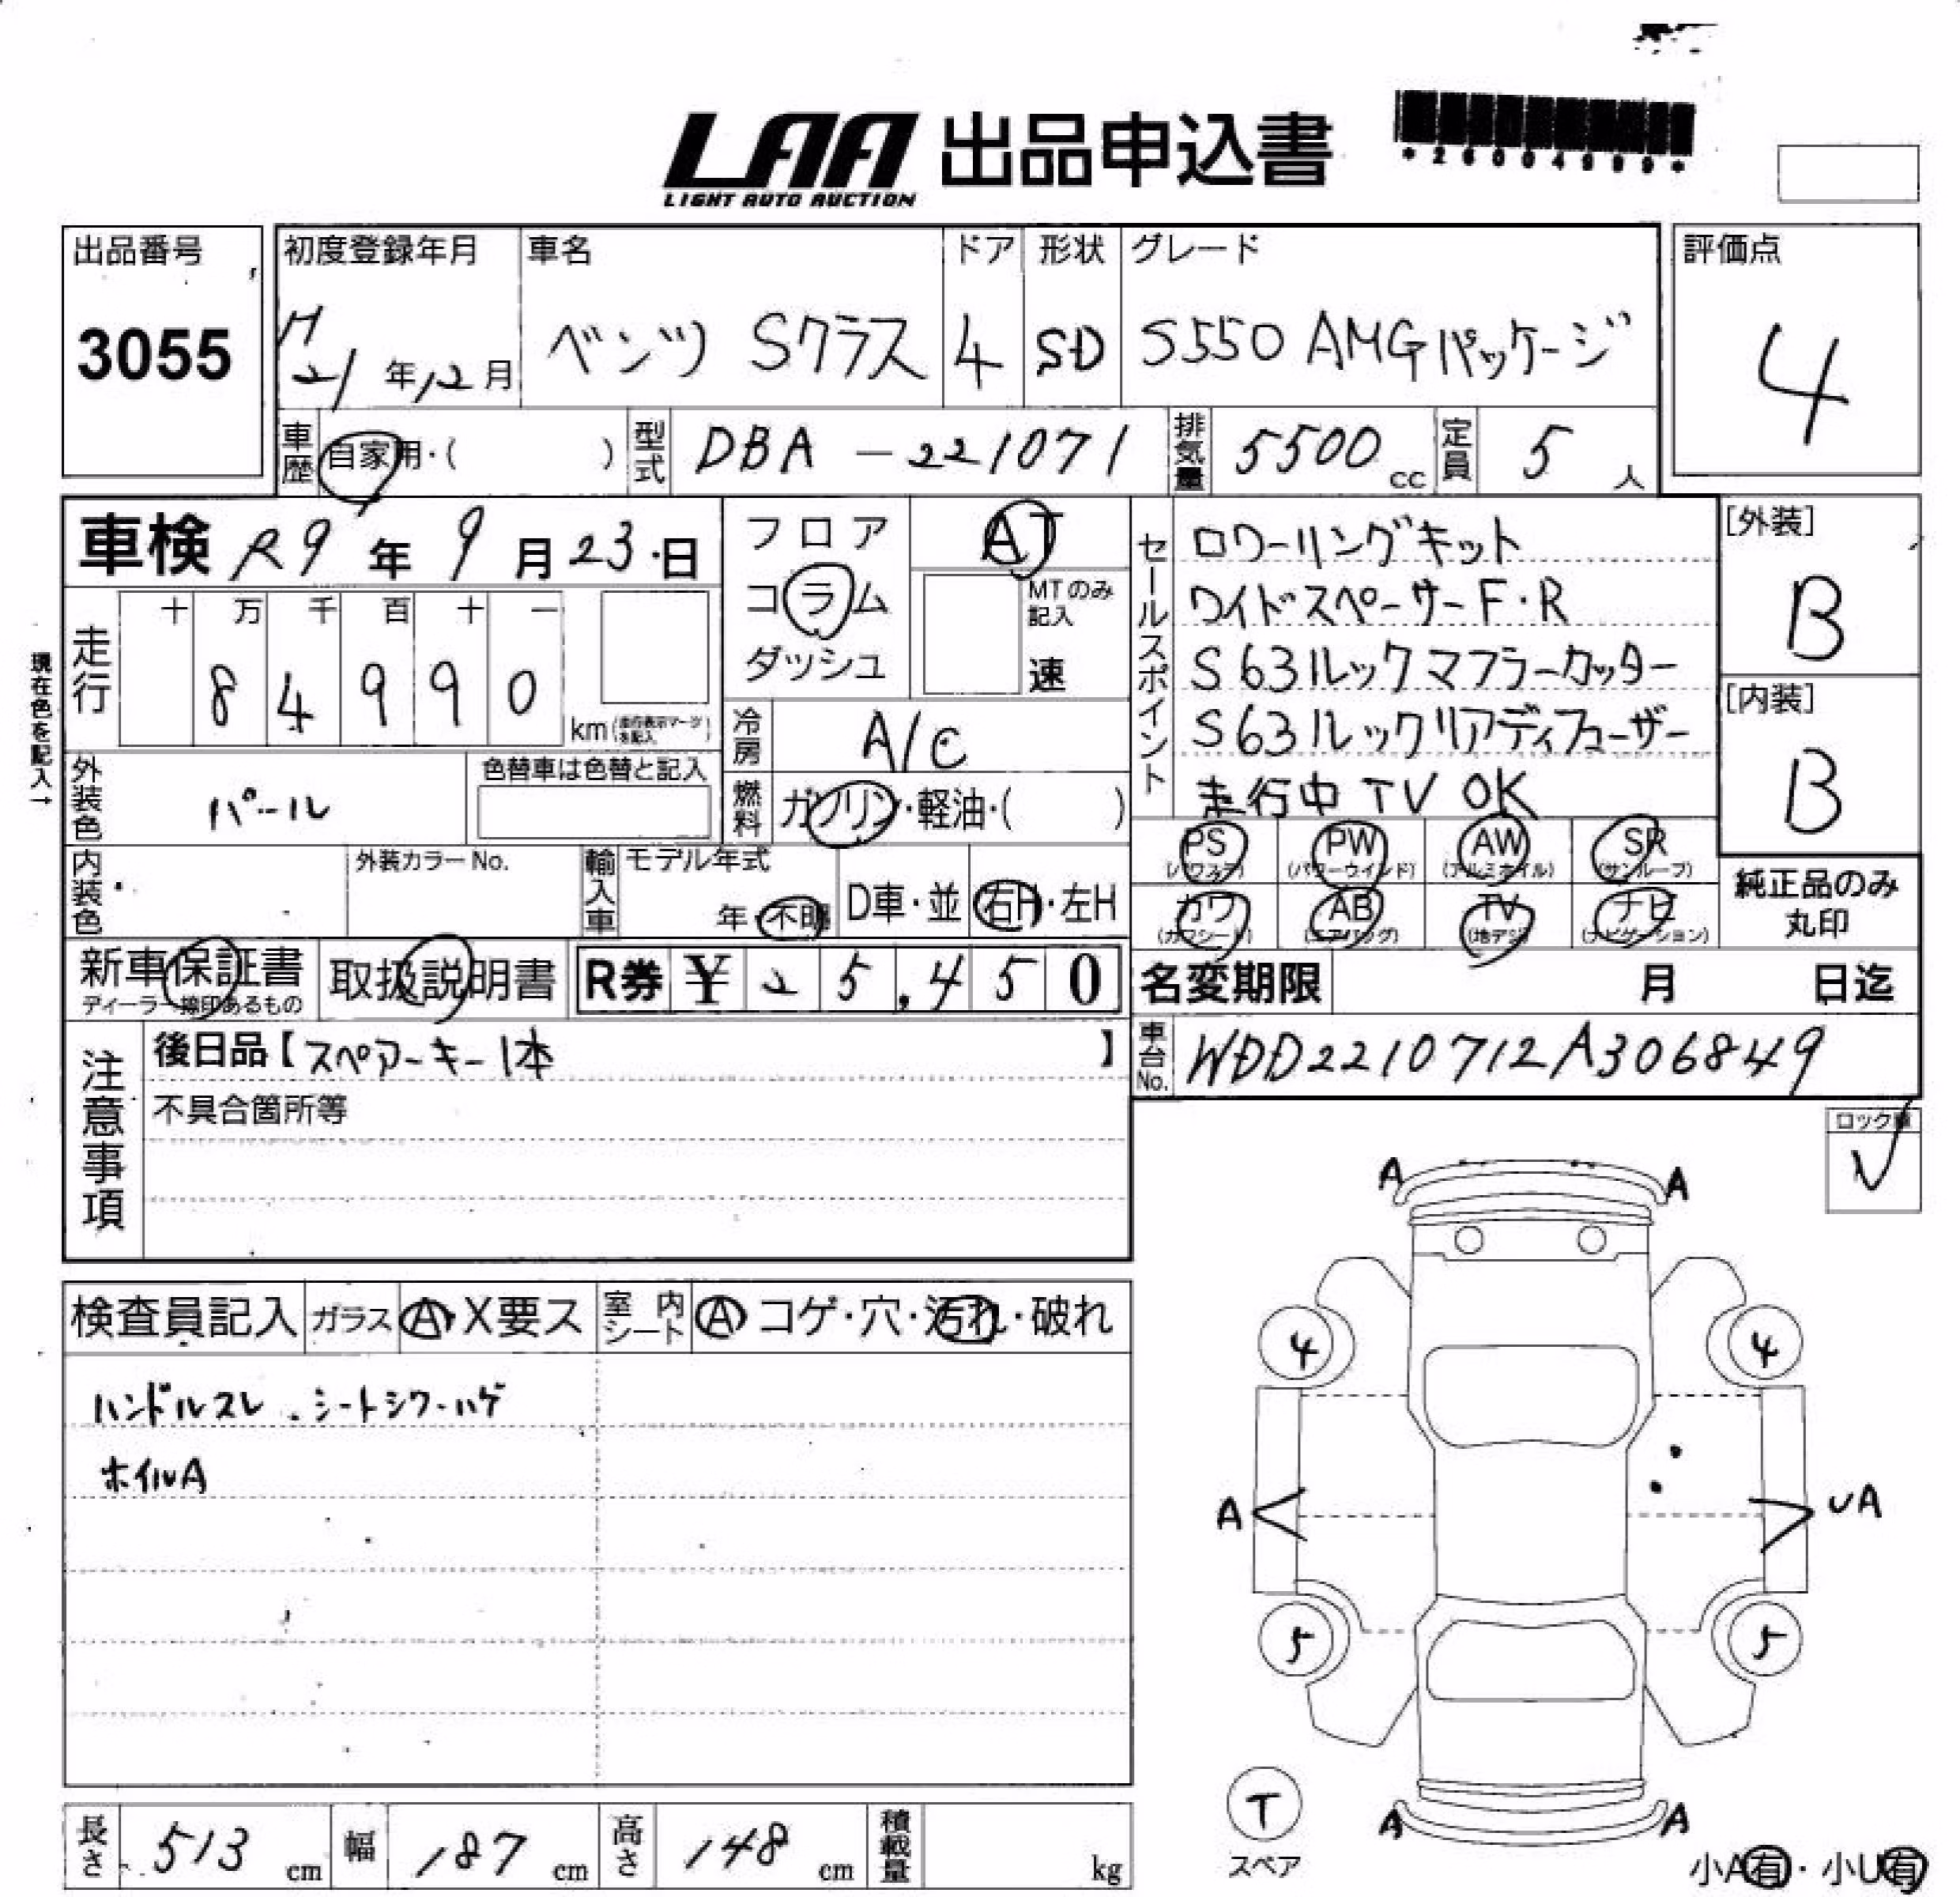 LAA 出品申込書
LIGHT AUTO AUCTION
*26004999*
出品番号
3055
初度登録年月
H21年12月
車名
ベンツ Sクラス
ドア
4
形状
SD
グレード
S550 AMGパッケージ
評価点
4
車歴 自家用・( )
型式 DBA-221071
排気量 5500cc
定員 5人
車検 R9年9月23日
現在色を記入→
走行
十 万 千 百 十 一
8 4 9 9 0
km(走行表示マークを記入)
フロア
コラム
ダッシュ
AT
MTのみ記入
速
冷房 A/C
燃料 ガソリン・軽油・( )
セールスポイント
ロワーリングキット
ワイドスペーサーF・R
S63ルックマフラーカッター
S63ルックリアディフューザー
走行中TV OK
[外装]
B
[内装]
B
外装色 パール
色替車は色替と記入
内装色
外装カラーNo.
輸入車
モデル年式
年・不明
D車・並
右H・左H
PS (パワステ)
PW (パワーウインド)
AW (アルミホイル)
SR (サンルーフ)
カワ (カワシート)
AB (エアバッグ)
TV (地デジ)
ナビ (ナビゲーション)
純正品のみ
丸印
新車保証書
ディーラー捺印あるもの
取扱説明書
R券 ¥25,450
名変期限 月 日迄
車台No. WDD2210712A306849
注意事項
後日品【スペアーキー1本】
不具合箇所等
ロック車
✓
検査員記入
ガラス A・X要ス
室内シート A コゲ・穴・汚れ・破れ
ハンドルスレ.シートシワ・ハゲ
ホイルA
A A
4 4
A UA
5 5
T
スペア
A A
小A有・小U有
長さ 513cm
幅 187cm
高さ 148cm
積載量 kg